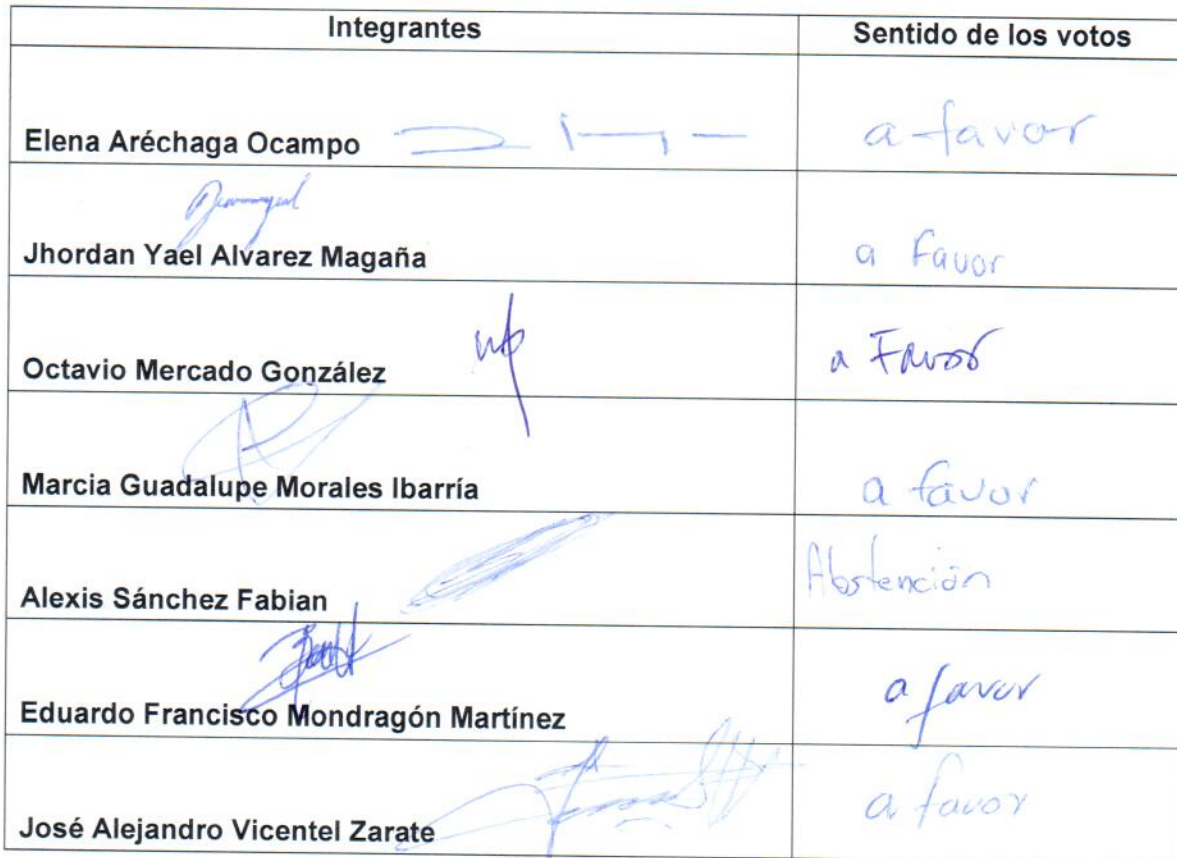 Integrantes Sentido de los votos
Elena Aréchaga Ocampo a favor
Jhordan Yael Alvarez Magaña a Favor
Octavio Mercado González a Favor
Marcia Guadalupe Morales Ibarría a favor
Alexis Sánchez Fabian Abstención
Eduardo Francisco Mondragón Martínez a favor
José Alejandro Vicentel Zarate a favor